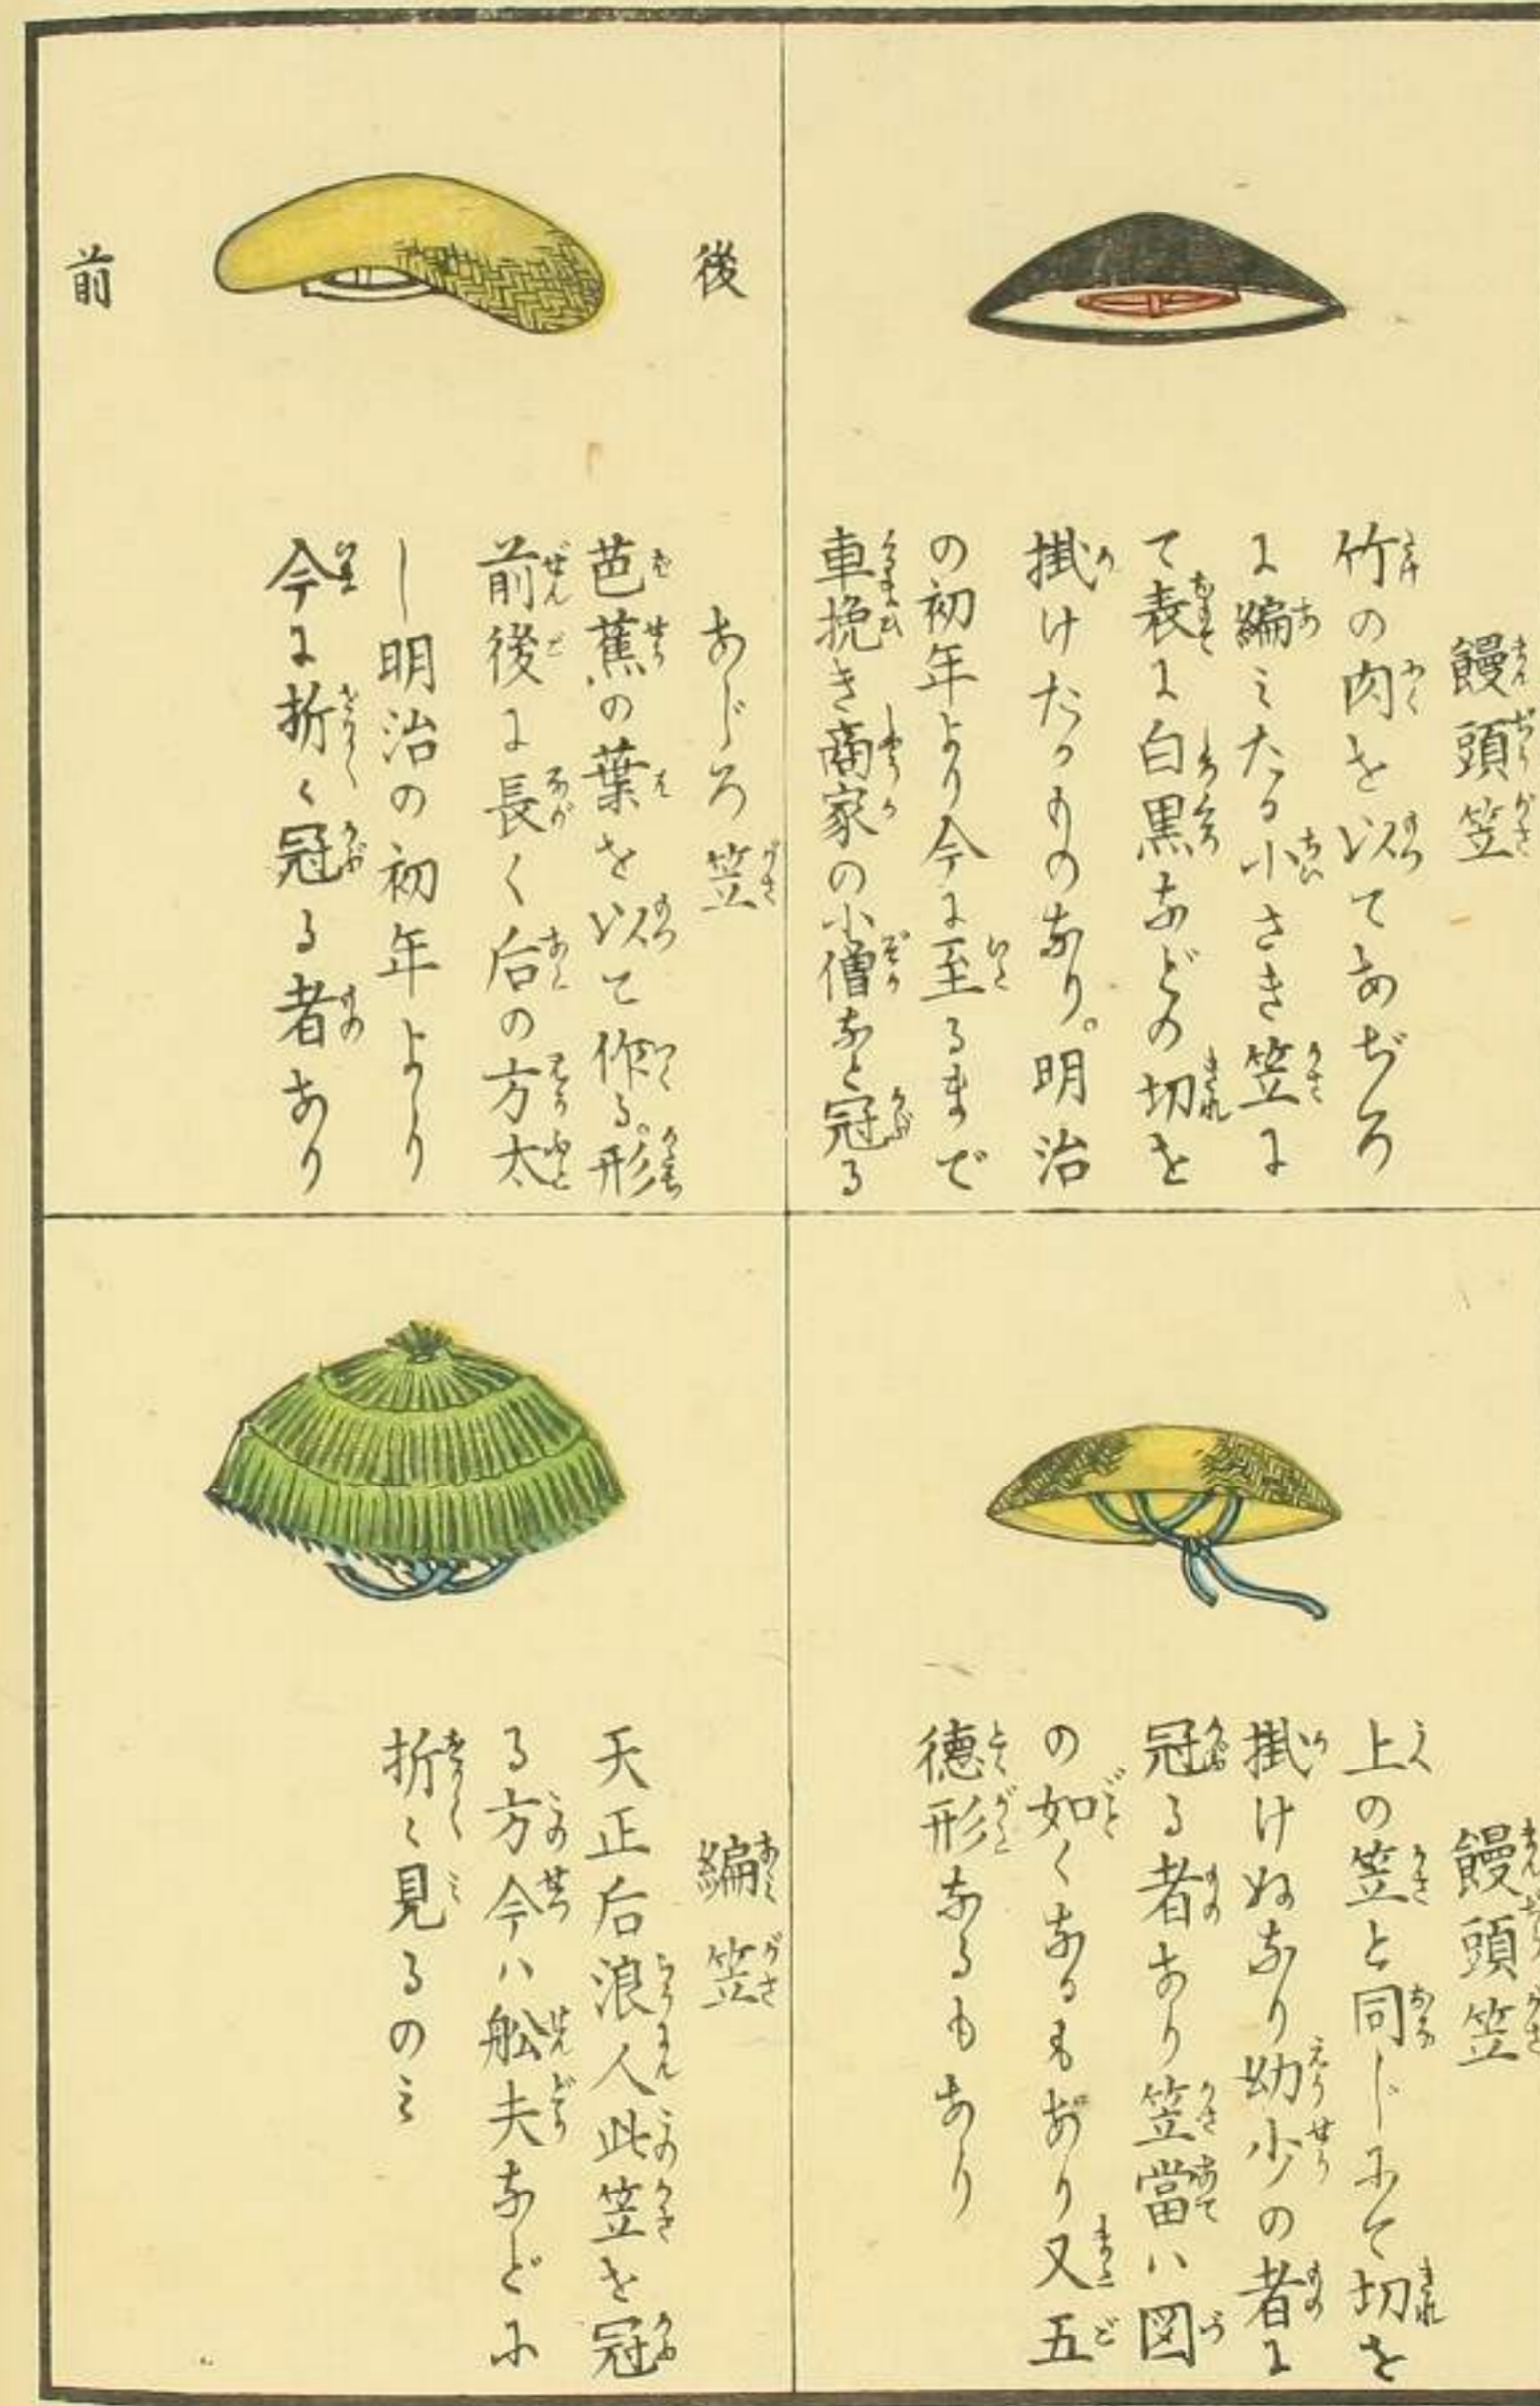 饅頭笠
竹の肉を以てあぢろ
に編ミたる小さき笠に
て表に白黒などの切を
掛けたるものなり。明治
の初年より今に至るまで
車挽き商家の小僧など冠る
後
前
あじろ笠
芭蕉の葉を以て作る。形
前後に長く后の方太
し明治の初年より
今に折〱冠る者あり
饅頭笠
上の笠と同じにて切を
掛けぬなり幼少の者に
冠る者あり笠當ハ図
の如くなるもあり又五
徳形なるもあり
編笠
天正后浪人此笠を冠
る方今ハ舩夫などに
折〻見るのミ